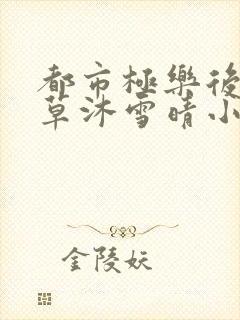 都市極樂後
草沐雪晴小
金陵妖